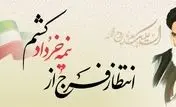 انتظار فرج از
نیمه خرداد کشم